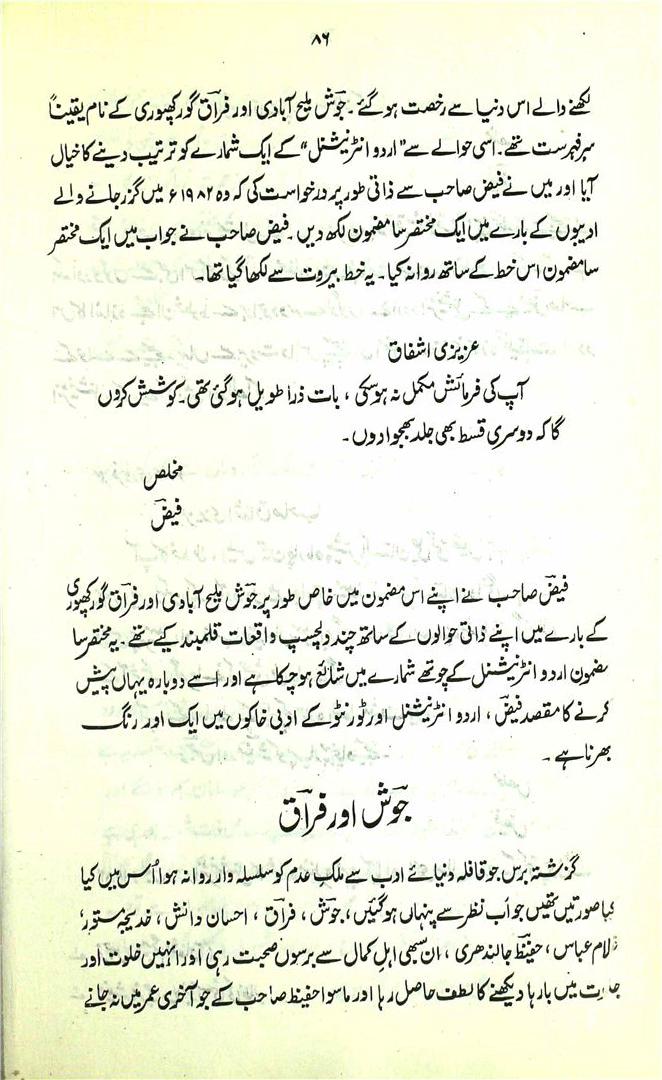 ۸۶
لکھنے والے اس دنیا سے رخصت ہو گئے ۔ جوشؔ ملیح آبادی اور فراقؔ گورکھپوری کے نام یقیناً
سرفہرست تھے ۔ اسی حوالے سے "اردو انٹرنیشنل" کے ایک شمارے کو ترتیب دینے کا خیال
آیا اور میں نے فیض صاحب سے ذاتی طور پر درخواست کی کہ وہ ۱۹۸۲ء میں گزر جانے والے
ادیبوں کے بارے میں ایک مختصر سا مضمون لکھ دیں ۔ فیض صاحب نے جواب میں ایک مختصر
سا مضمون اس خط کے ساتھ روانہ کیا ۔ یہ خط بیروت سے لکھا گیا تھا ۔
عزیزی اشفاق
آپ کی فرمائش مکمل نہ ہو سکی ، بات ذرا طویل ہو گئی تھی ۔ کوشش کروں
گا کہ دوسری قسط بھی جلد بھجوا دوں ۔
مخلص
فیضؔ
فیضؔ صاحب نے اپنے اس مضمون میں خاص طور پر جوشؔ ملیح آبادی اور فراقؔ گورکھپوری
کے بارے میں اپنے ذاتی حوالوں کے ساتھ چند دلچسپ واقعات قلمبند کیے تھے ۔ یہ مختصر سا
مضمون اردو انٹرنیشنل کے چوتھے شمارے میں شائع ہو چکا ہے اور اسے دوبارہ یہاں پیش
کرنے کا مقصد فیضؔ ، اردو انٹرنیشنل اور ٹورنٹو کے ادبی خاکوں میں ایک اور رنگ
بھرنا ہے ۔
جوشؔ اور فراقؔ
گزشتہ برس جو قافلہ دنیائے ادب سے ملکِ عدم کو سلسلہ وار روانہ ہوا اُس میں کیا
کیا صورتیں تھیں جو اَب نظر سے پنہاں ہو گئیں ، جوشؔ ، فراقؔ ، احسان دانش ، خدیجہ مستور ،
غلام عباس ، حفیظؔ جالندھری ، ان سبھی اہلِ کمال سے برسوں صحبت رہی اور انہیں خلوت اور
جلوت میں بارہا دیکھنے کا لطف حاصل رہا اور ماسوا حفیظ صاحب کے جو آخری عمر میں نہ جانے